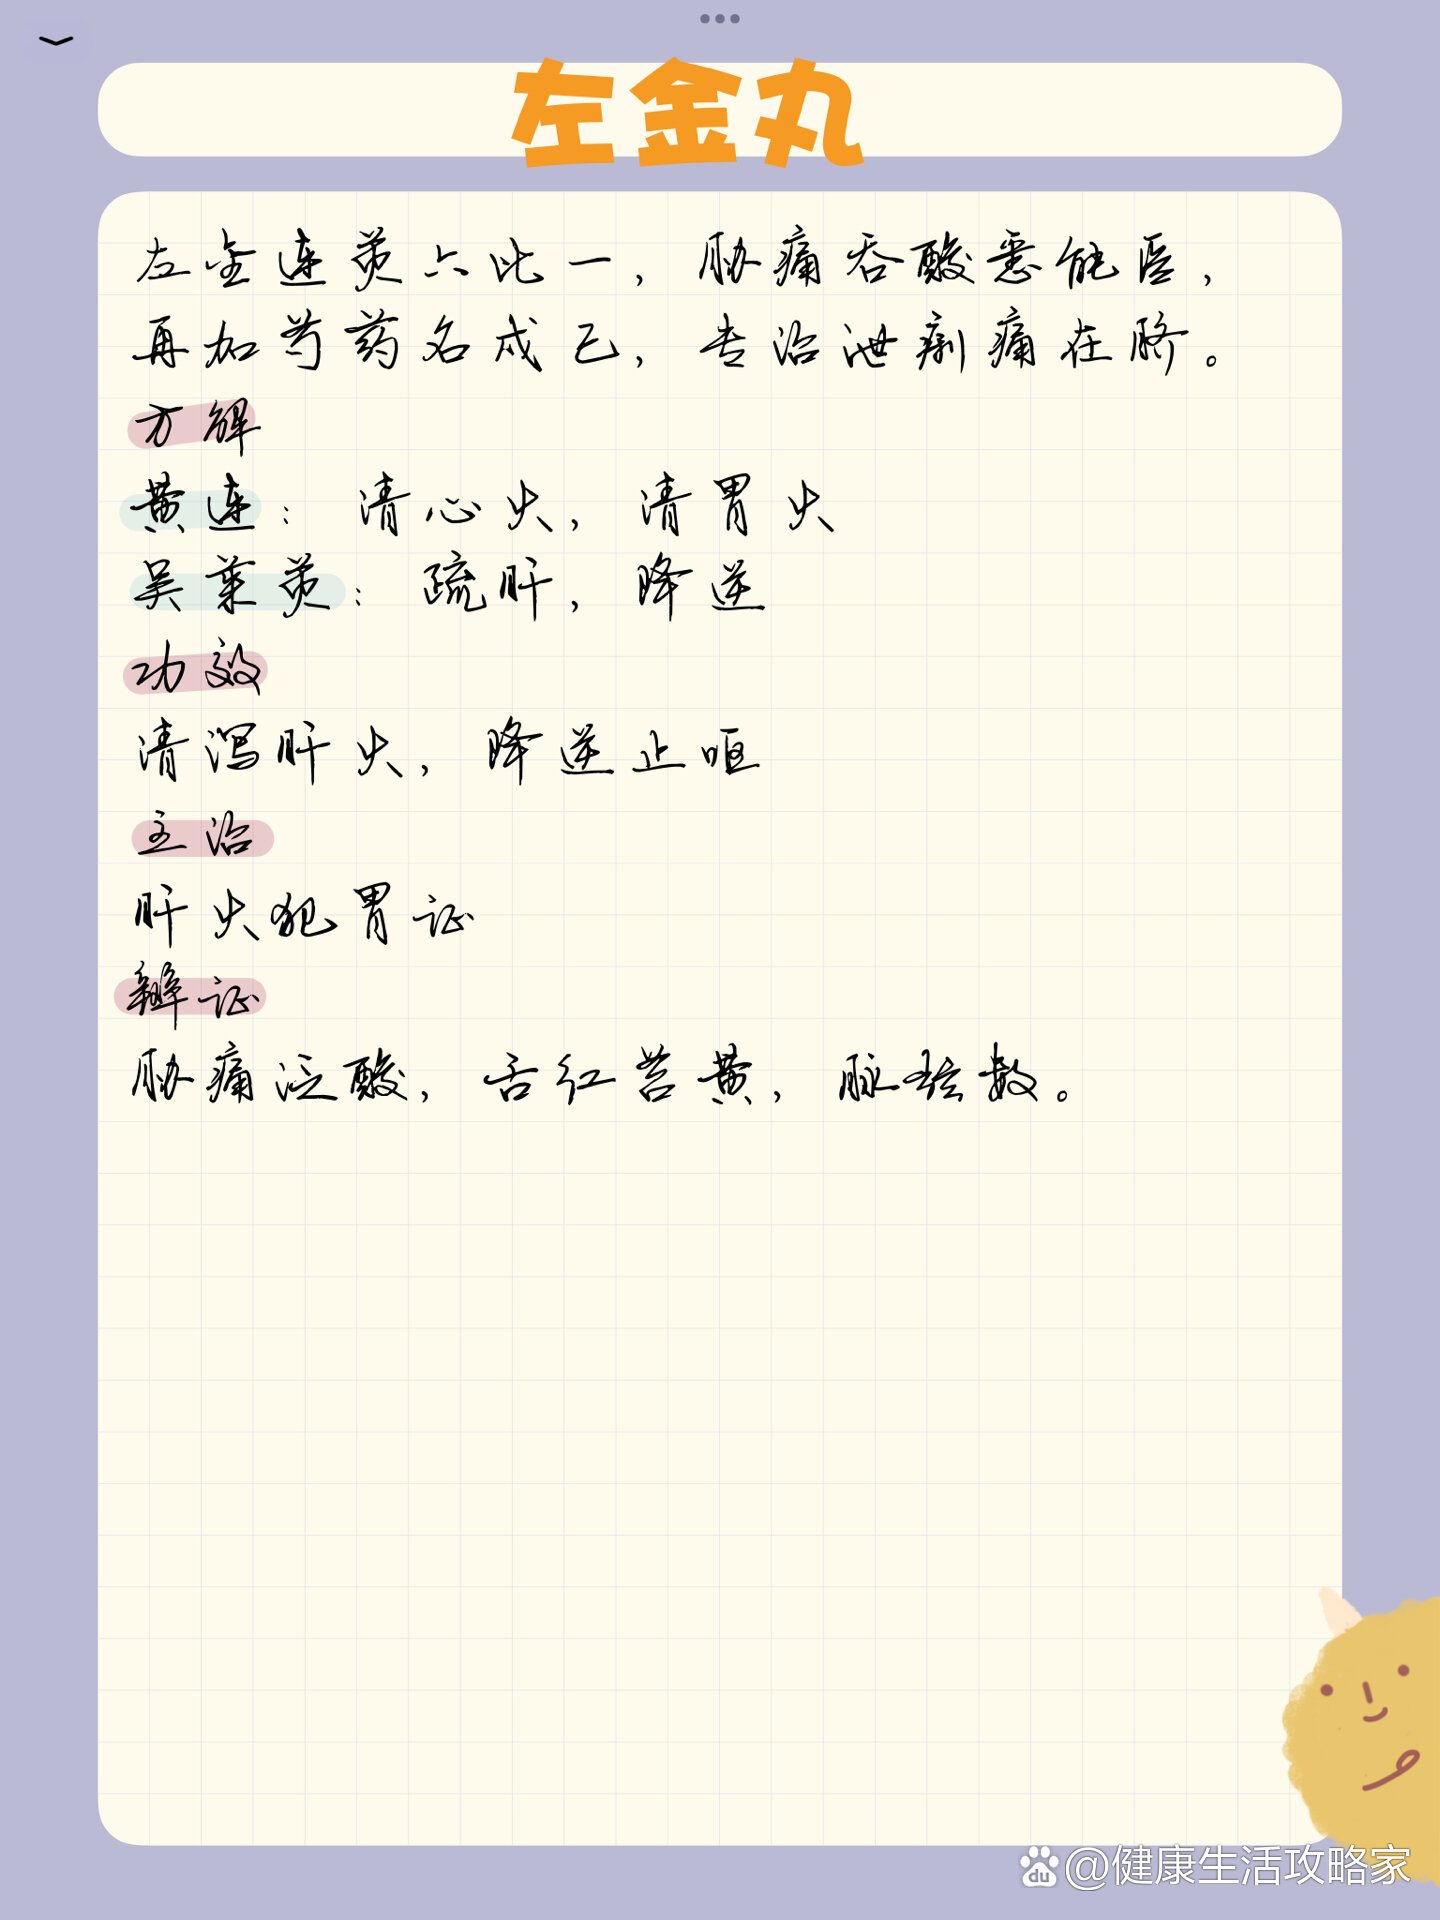 左金丸
左金连萸六比一，胁痛吞酸悉能医，
再加芍药名戊己，专治泄痢痛在脐。
方解
黄连：清心火，清胃火
吴茱萸：疏肝，降逆
功效
清泻肝火，降逆止呕
主治
肝火犯胃证
辨证
胁痛泛酸，舌红苔黄，脉弦数。
du @健康生活攻略家